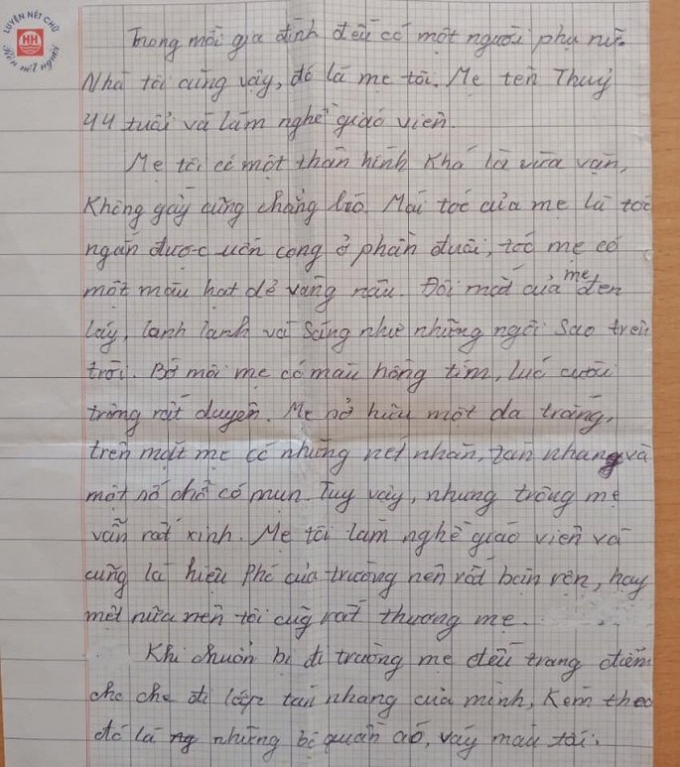 LUYỆN NÉT CHỮ
HH
Rèn nết người
Trong mỗi gia đình đều có một người phụ nữ.
Nhà tôi cũng vậy, đó là mẹ tôi. Mẹ tên Thuỷ
44 tuổi và làm nghề giáo viên.
Mẹ tôi có một thân hình khá là vừa vặn,
không gầy cũng chẳng béo. Mái tóc của mẹ là tóc
ngắn được uốn cong ở phần đuôi, tóc mẹ có
một màu hạt dẻ vàng nâu. Đôi mắt của mẹ đen
láy, lanh lanh và sáng như những ngôi sao trên
trời. Bờ môi mẹ có màu hồng tím, lúc cười
trông rất duyên. Mẹ sở hữu một da trắng,
trên mặt mẹ có những nết nhăn, tàn nhang và
một số chỗ có mụn. Tuy vậy, nhưng trông mẹ
vẫn rất xinh. Mẹ tôi làm nghề giáo viên và
cũng là hiệu phó của trường nên rất bận rộn, hay
mệt nữa nên tôi cũg rất thương mẹ.
Khi chuẩn bị đi trường mẹ đều trang điểm
cho che đi lớp tàn nhang của mình, kèm theo
đó là ng những bộ quần áo, váy màu tối.